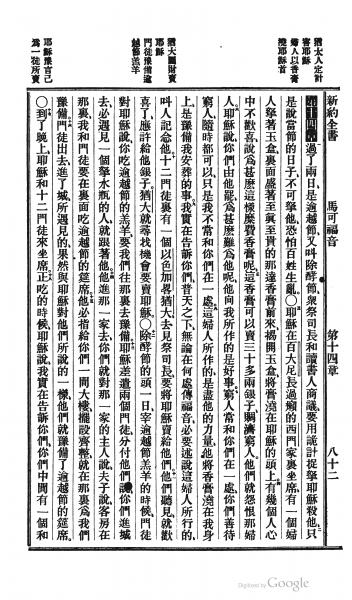 新約全書
馬可福音
第十四章
八十二
猶太人定計
害耶穌
婦人以香膏
澆耶穌首
猶大圖財賣
耶穌
門徒豫備逾
越節羔羊
耶穌豫言己
為一徒所賣
第十四章過了兩日、是逾越節、又叫除酵節、衆祭司長和讀書人商議、要用詭計捉拏耶穌殺他、只
是說當節的日子、不可拏他、恐怕百姓生亂。〇耶穌在百大尼長過癩的西門家裏坐席、有一個婦
人、擎著玉盒、裏面盛著至眞至貴的那達香膏前來、揭開玉盒、將膏澆在耶穌的頭上、有幾個人心
中不歡喜、說爲甚麼這樣糜費香膏呢、這香膏可以賣三十多兩銀子、賙濟窮人、他們就怨恨那婦
人。耶穌說、你們由他罷、爲甚麼難爲他呢、他向我所作的是好事、窮人常和你們在一處、你們善待
窮人、隨時都可以、只是我不常和你們在一處、這婦人所作的、是盡他的力量、他將香膏澆在我身
上、是豫備我安葬的事、我實在告訴你們、普天之下、無論在何處傳福音、必要述說這婦人所行的、
叫人記念他。十二門徒裏有一個以色加畧猶大、去見祭司長、要將耶穌賣給他們、他們聽見就歡
喜了、應許給他銀子、猶大就尋找機會要賣耶穌。〇除酵節的頭一日、宰逾越節羔羊的時候、門徒
對耶穌說、你吃逾越節的羔羊、要我們往那裏去豫備、耶穌差遣兩個門徒、分付他們說、你們進城
去、必遇見一個拏水瓶的人、就跟著他、他進那一家去、你們就對那一家的主人說、夫子說、客房在
那裏、我和門徒要在裏面吃逾越節的筵席、他必指給你們一間大樓、擺設齊整、就在那裏爲我們
豫備、門徒出去、進了城、所遇見的、果然與耶穌對他們所說的一樣、他們就豫備了逾越節的筵席。
〇到了晚上、耶穌和十二門徒來坐席、正吃的時候、耶穌說、我實在告訴你們、你們中間有一個和
Digitized by Google